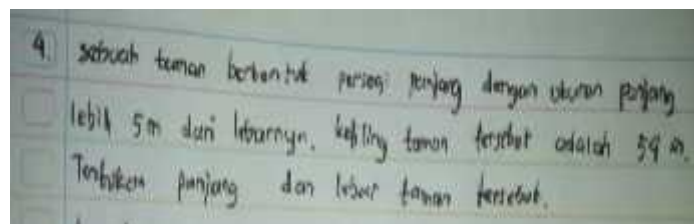 4. sebuah taman berbentuk persegi panjang dengan ukuran panjang
lebih 5m dari lebarnya. keliling taman tersebut adalah 54 m.
Tentukan panjang dan lebar taman tersebut.